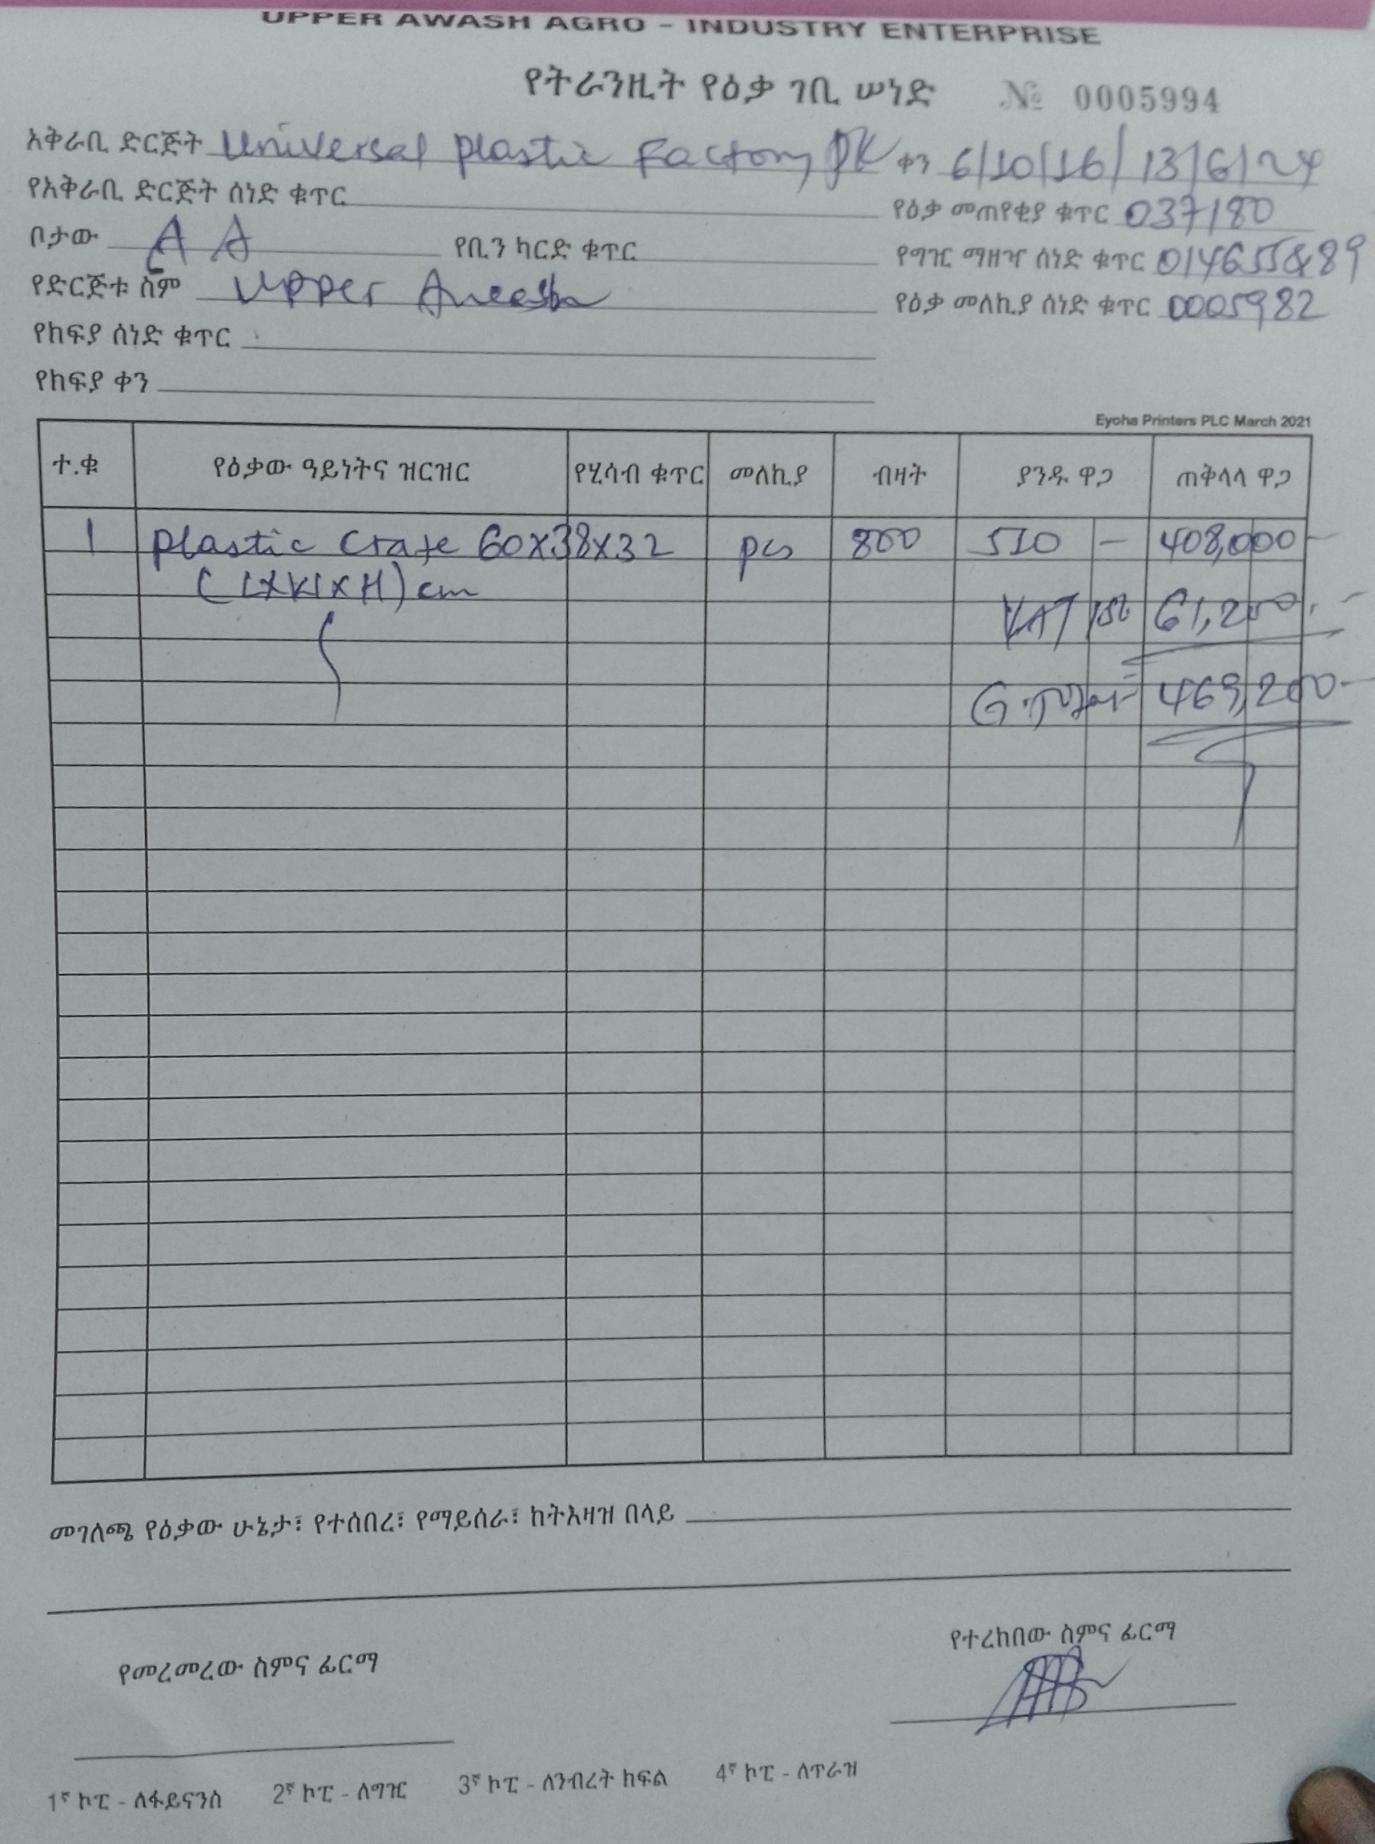 UPPER AWASH AGRO - INDUSTRY ENTERPRISE
የትራንዚት የዕቃ ገቢ ሠነድ № 0005994
አቅራቢ ድርጅት Universal plastic Factory ቀን 6/10/16/ 13/6/24
የአቅራቢ ድርጅት ሰነድ ቁጥር የዕቃ መጠየቂያ ቁጥር 037180
ቦታው A A የቢን ካርድ ቁጥር የግዢ ማዘዣ ሰነድ ቁጥር
የድርጅቱ ስም Upper የዕቃ መለኪያ ሰነድ ቁጥር 0005982
የከፍያ ሰነድ ቁጥር
የከፍያ ቀን
Eyoha Printers PLC March 2021
ተ.ቁ የዕቃው ዓይነትና ዝርዝር የሂሳብ ቁጥር መለኪያ ብዛት ያንዱ ዋጋ ጠቅላላ ዋጋ
1 plastic crate 60x38x32 pcs 800 510 - 408,000 -
(LxWxH) cm
VAT 15% 61,200.-
G.Total 469,200-
መገለጫ የዕቃው ሁኔታ፣ የተሰበረ፣ የማይሰራ፣ ከትእዛዝ በላይ
የተረከበው ስምና ፊርማ
የመረመረው ስምና ፊርማ
1ኛ ኮፒ - ለፋይናንስ 2ኛ ኮፒ - ለግዢ 3ኛ ኮፒ - ለንብረት ክፍል 4ኛ ኮፒ - ለጥራዝ